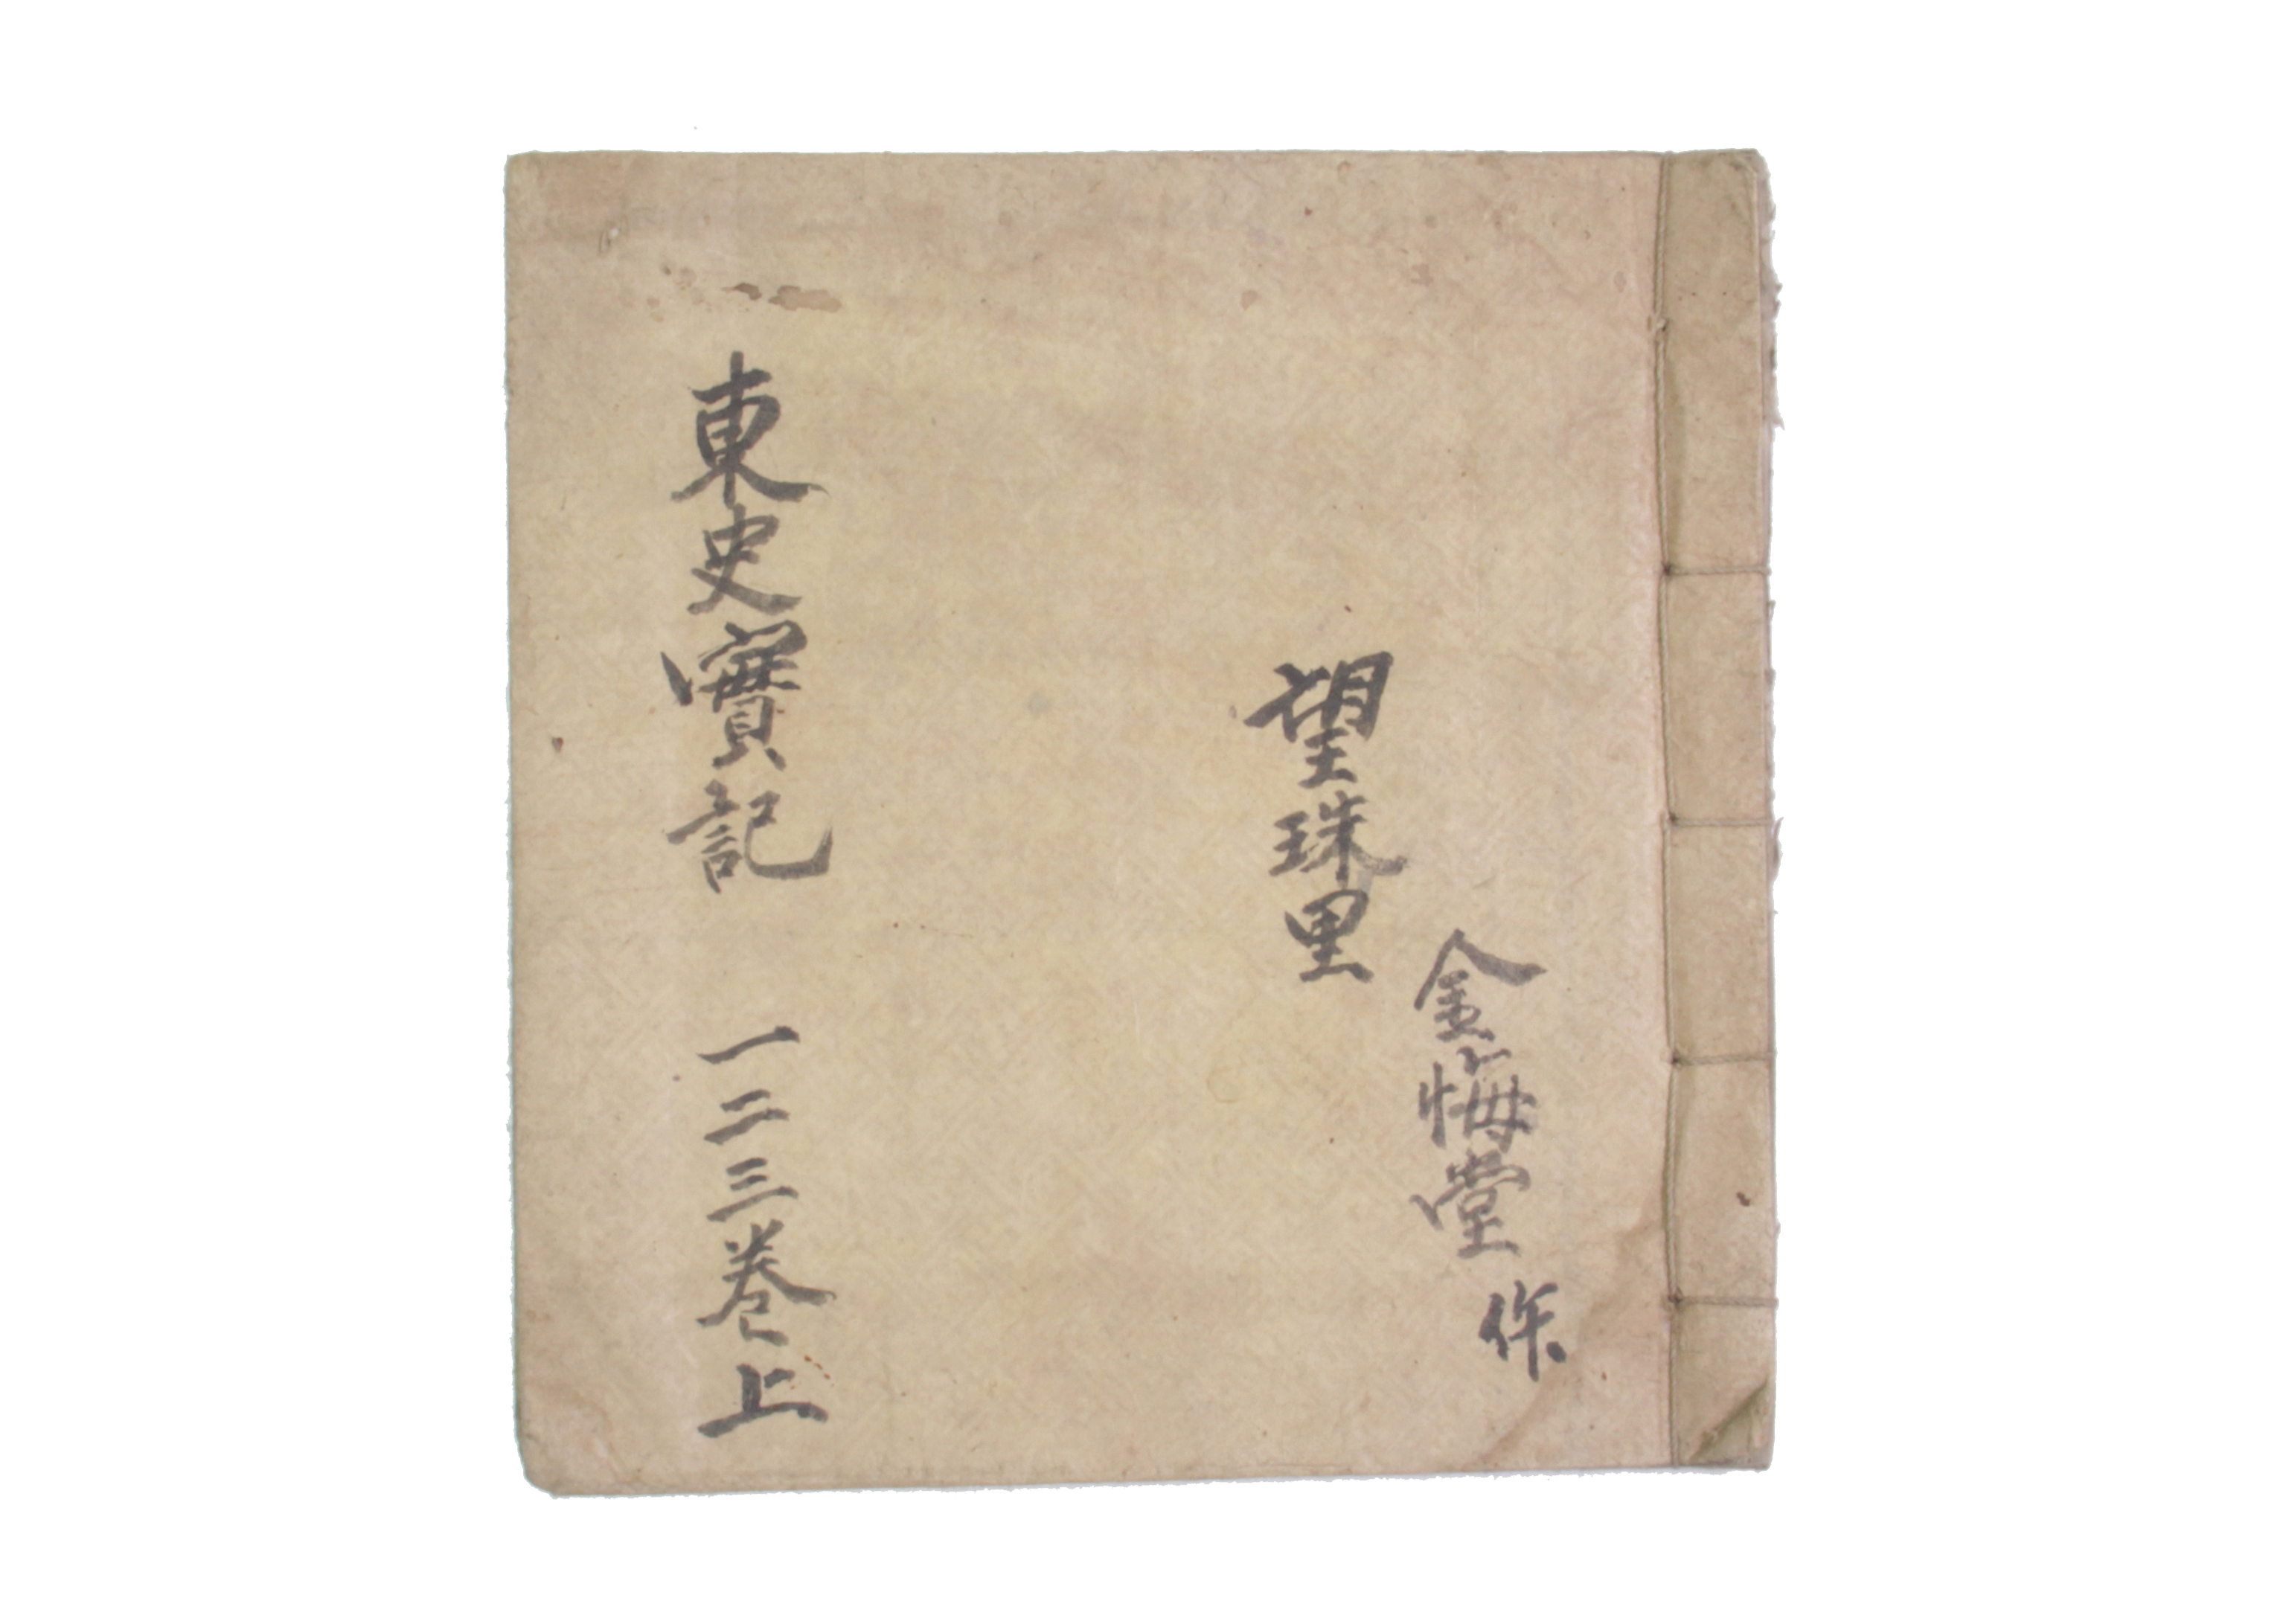 金悔堂作
望珠里
東史實記 一二三巻上